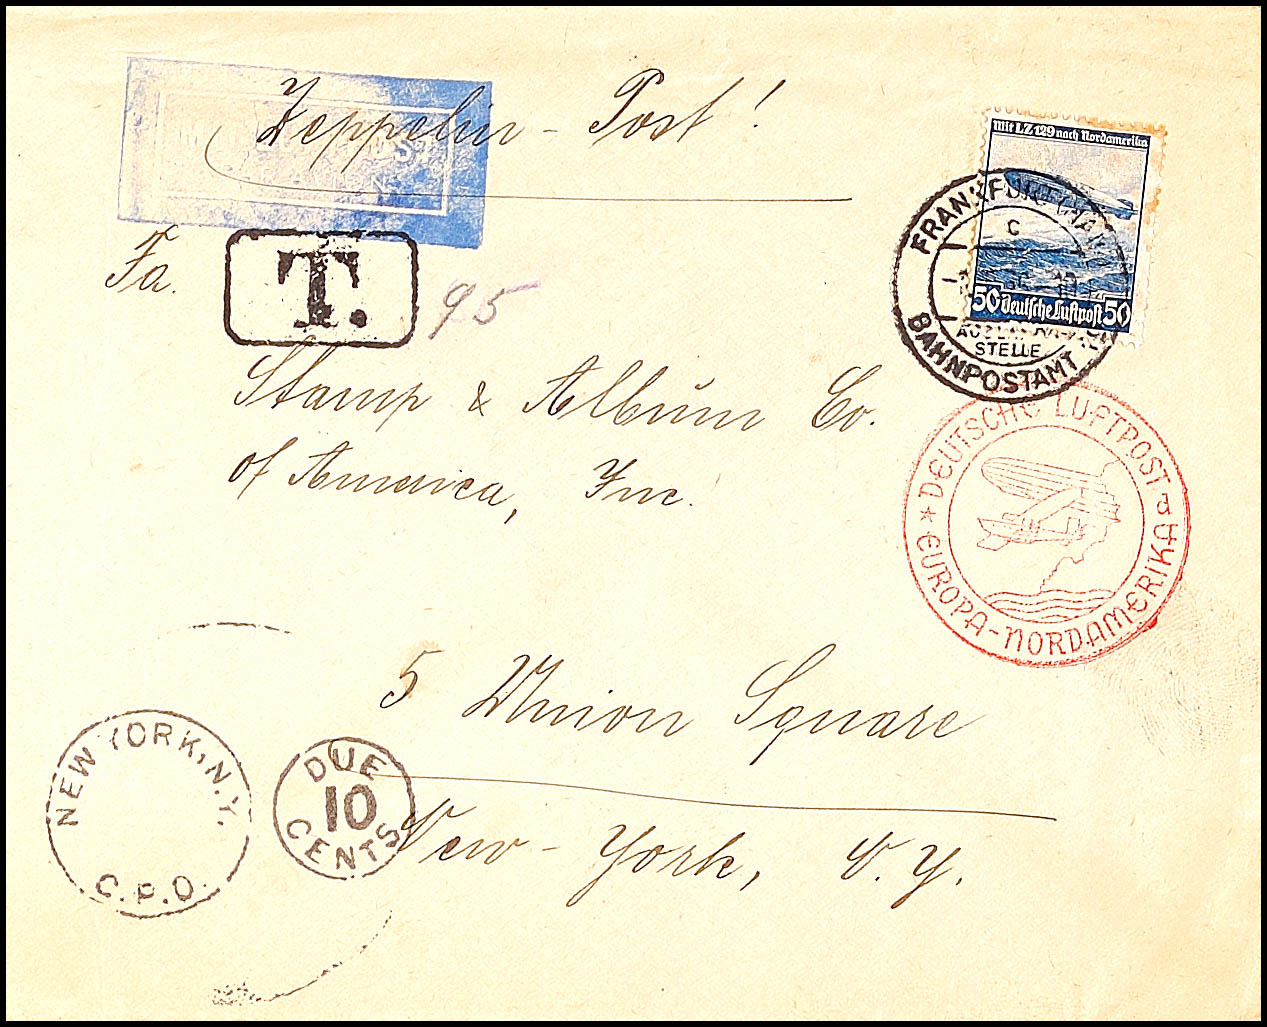 Zeppelin - Post!
Mit LZ 129 nach Nordamerika
50 Deutsche Luftpost 50
FRANKFURT (MAIN)
c
STELLE
BAHNPOSTAMT 19
Fa.
T.
95
Stamp & Album Co.
of America, Inc.
* DEUTSCHE LUFTPOST d
EUROPA-NORDAMERIKA
5 Union Square
NEW YORK, N.Y.
G.P.O.
DUE
10
CENTS
New-York, N.Y.